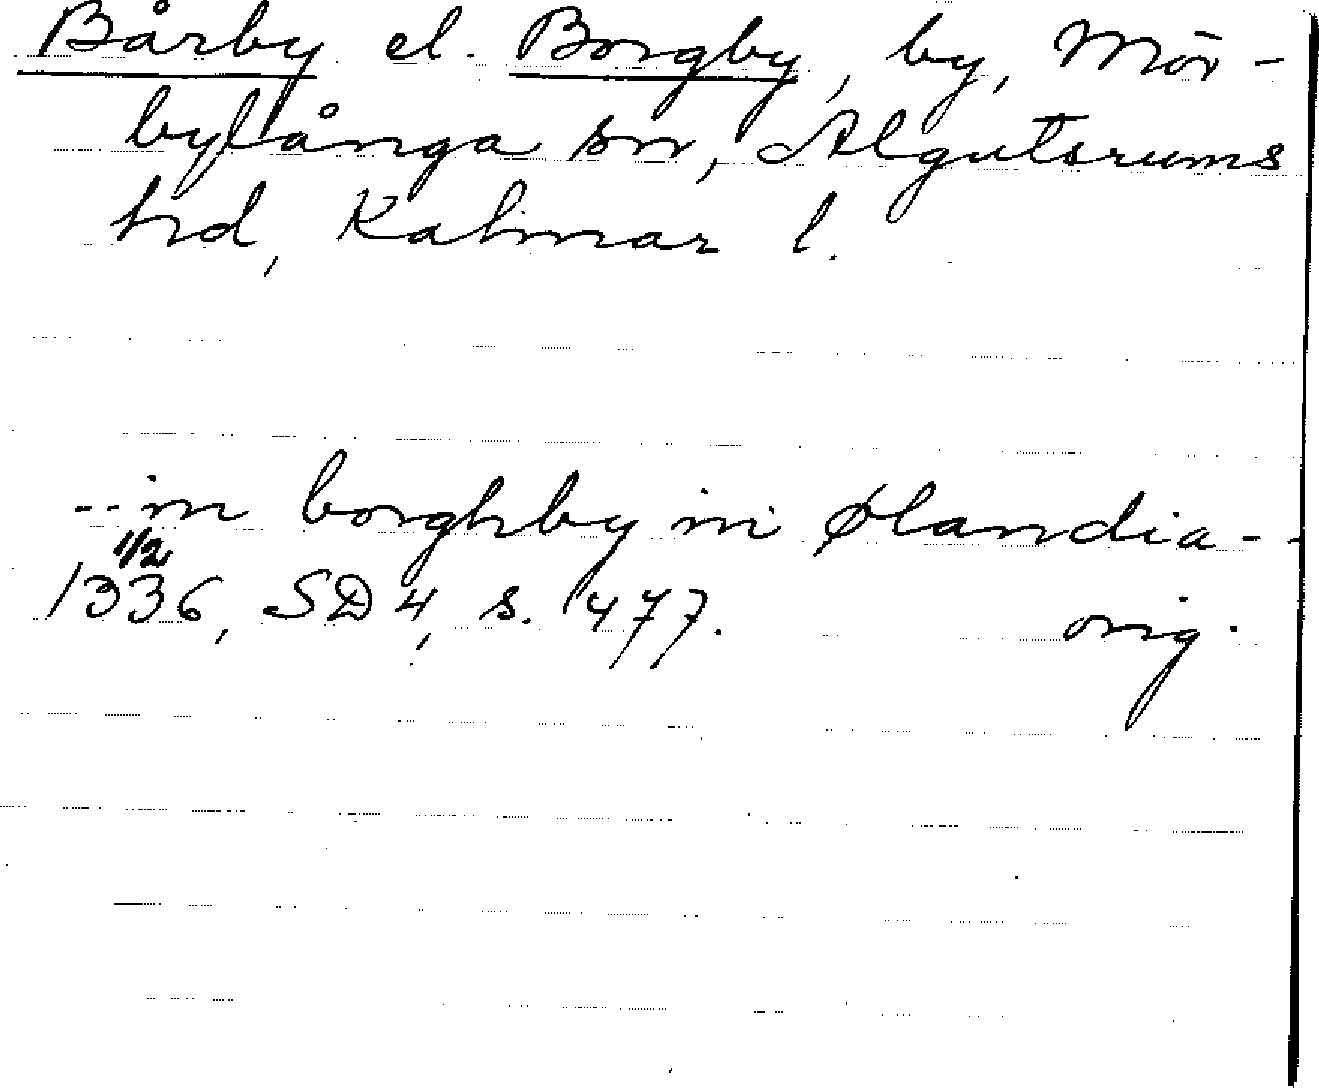 Bårby el. Borgby, by, Mör-
bylånga sn, Algutsrums
hd, Kalmar l.
--in borghby in ølandia--
1/2
1336, SD 4, s. 477. orig.